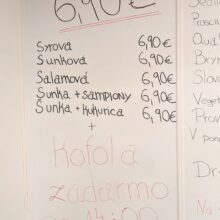 6,90€
Syrová 6,90€
Šunková 6,90€
Salamová 6,90€
Šunka + šampiony 6,90€
Šunka + kukurica 6,90€
+
Kofola
zadarmo
Quat
Bryn
Slov
Veget
Prov
V pon
Dr
Na